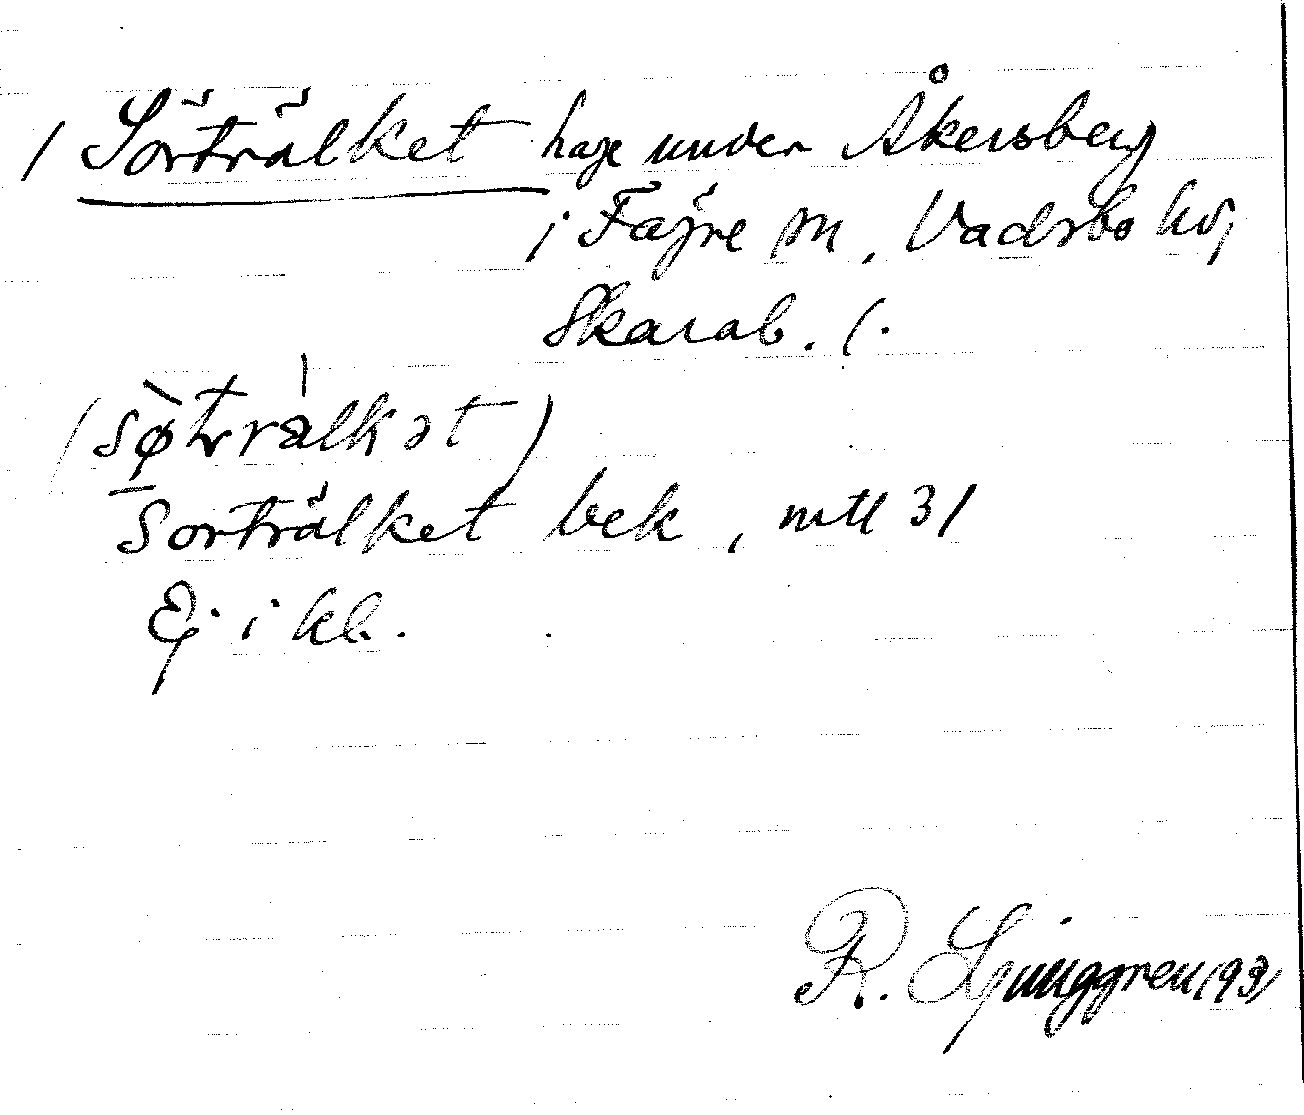 / Sörträlket hage under Åkersberg
i Fägre sn, Vadsbo hd,
Skarab. l.
(sø̀trálkət)
Sorträlket bek, mtl 31
Ej i kb.
R. Ljunggren 1931